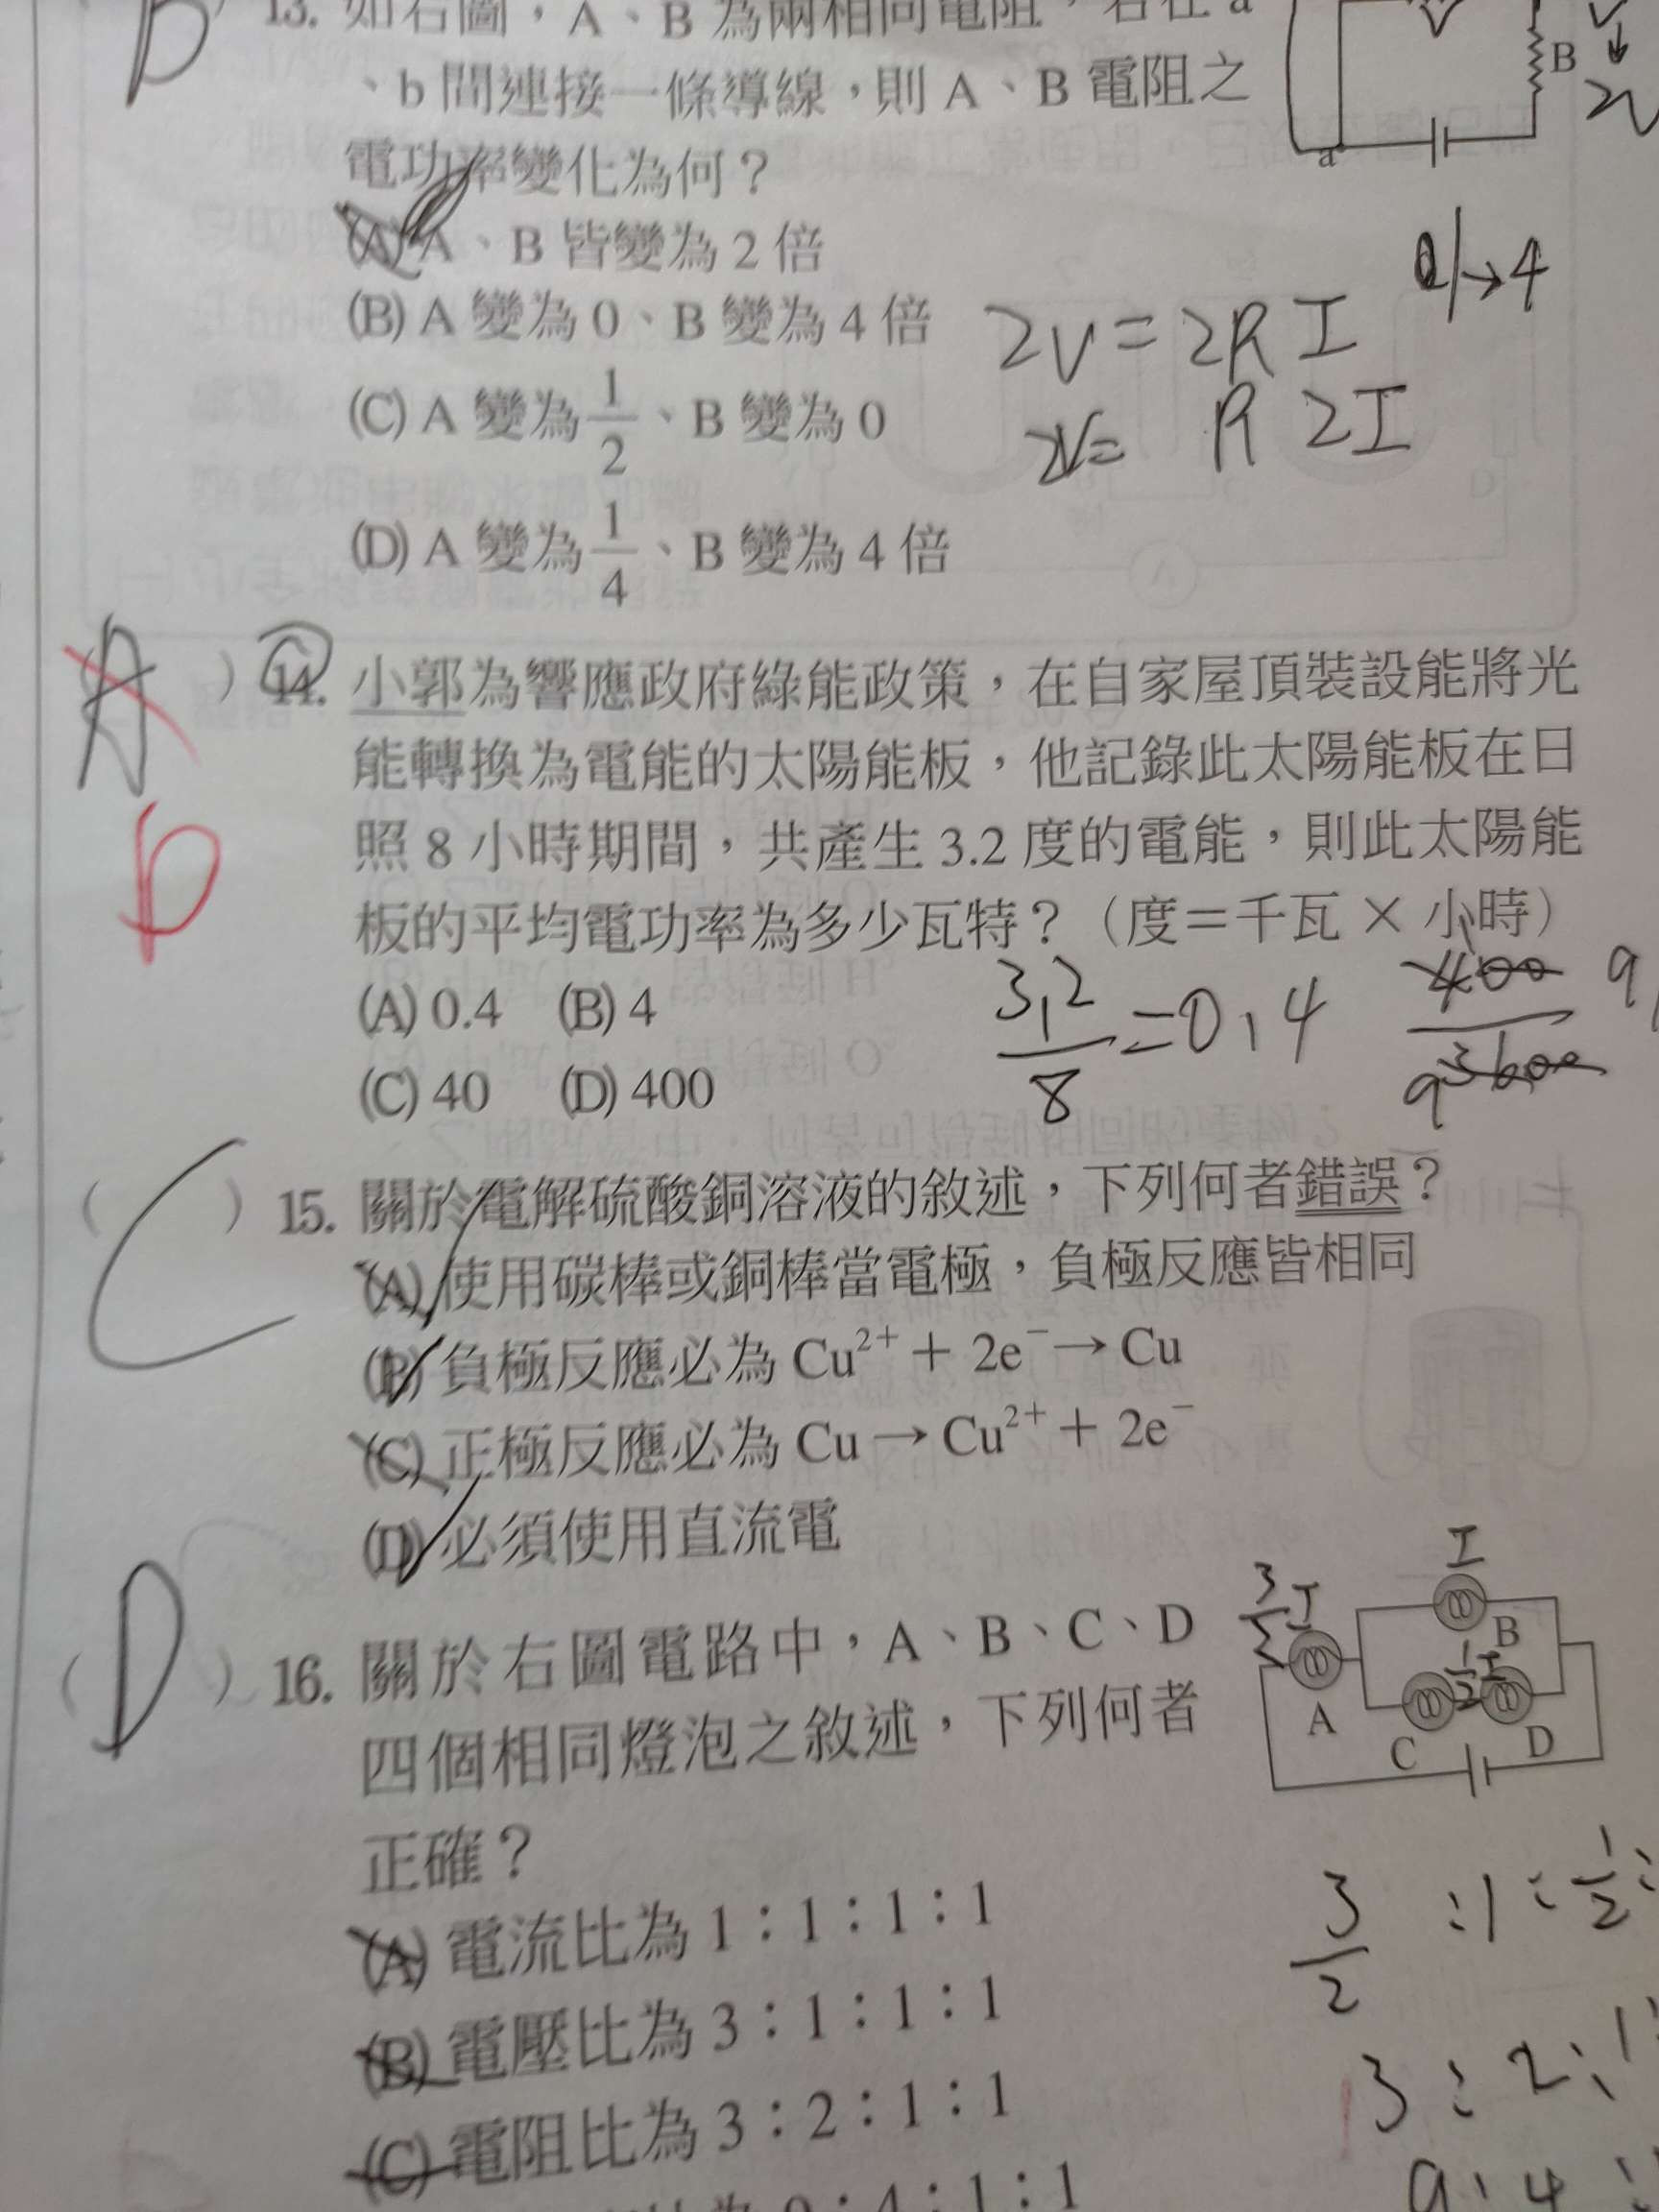 B
13. 如右圖，A、B 為兩相同電阻，若在 a
、b 間連接一條導線，則 A、B 電阻之
電功率變化為何？
(A) A、B 皆變為 2 倍
(B) A 變為 0、B 變為 4 倍
(C) A 變為 1/2、B 變為 0
(D) A 變為 1/4、B 變為 4 倍
B
a
V
↓
2V
→4
2V = 2R I
2V = R 2I
A
D
( ) 14. 小郭為響應政府綠能政策，在自家屋頂裝設能將光
能轉換為電能的太陽能板，他記錄此太陽能板在日
照 8 小時期間，共產生 3.2 度的電能，則此太陽能
板的平均電功率為多少瓦特？（度＝千瓦 × 小時）
(A) 0.4 (B) 4
(C) 40 (D) 400
3.2/8 = 0.4
400
3600
9
C
( ) 15. 關於電解硫酸銅溶液的敘述，下列何者錯誤？
(A) 使用碳棒或銅棒當電極，負極反應皆相同
(B) 負極反應必為 Cu²⁺ + 2e⁻ → Cu
(C) 正極反應必為 Cu → Cu²⁺ + 2e⁻
(D) 必須使用直流電
D
( ) 16. 關於右圖電路中，A、B、C、D
四個相同燈泡之敘述，下列何者
正確？
(A) 電流比為 1：1：1：1
(B) 電壓比為 3：1：1：1
(C) 電阻比為 3：2：1：1
：4：1：1
I
3/2 I
B
1/2 I
A
C
D
3/2 : 1 : 1/2 :
3 : 2 : 1
9 : 4 :